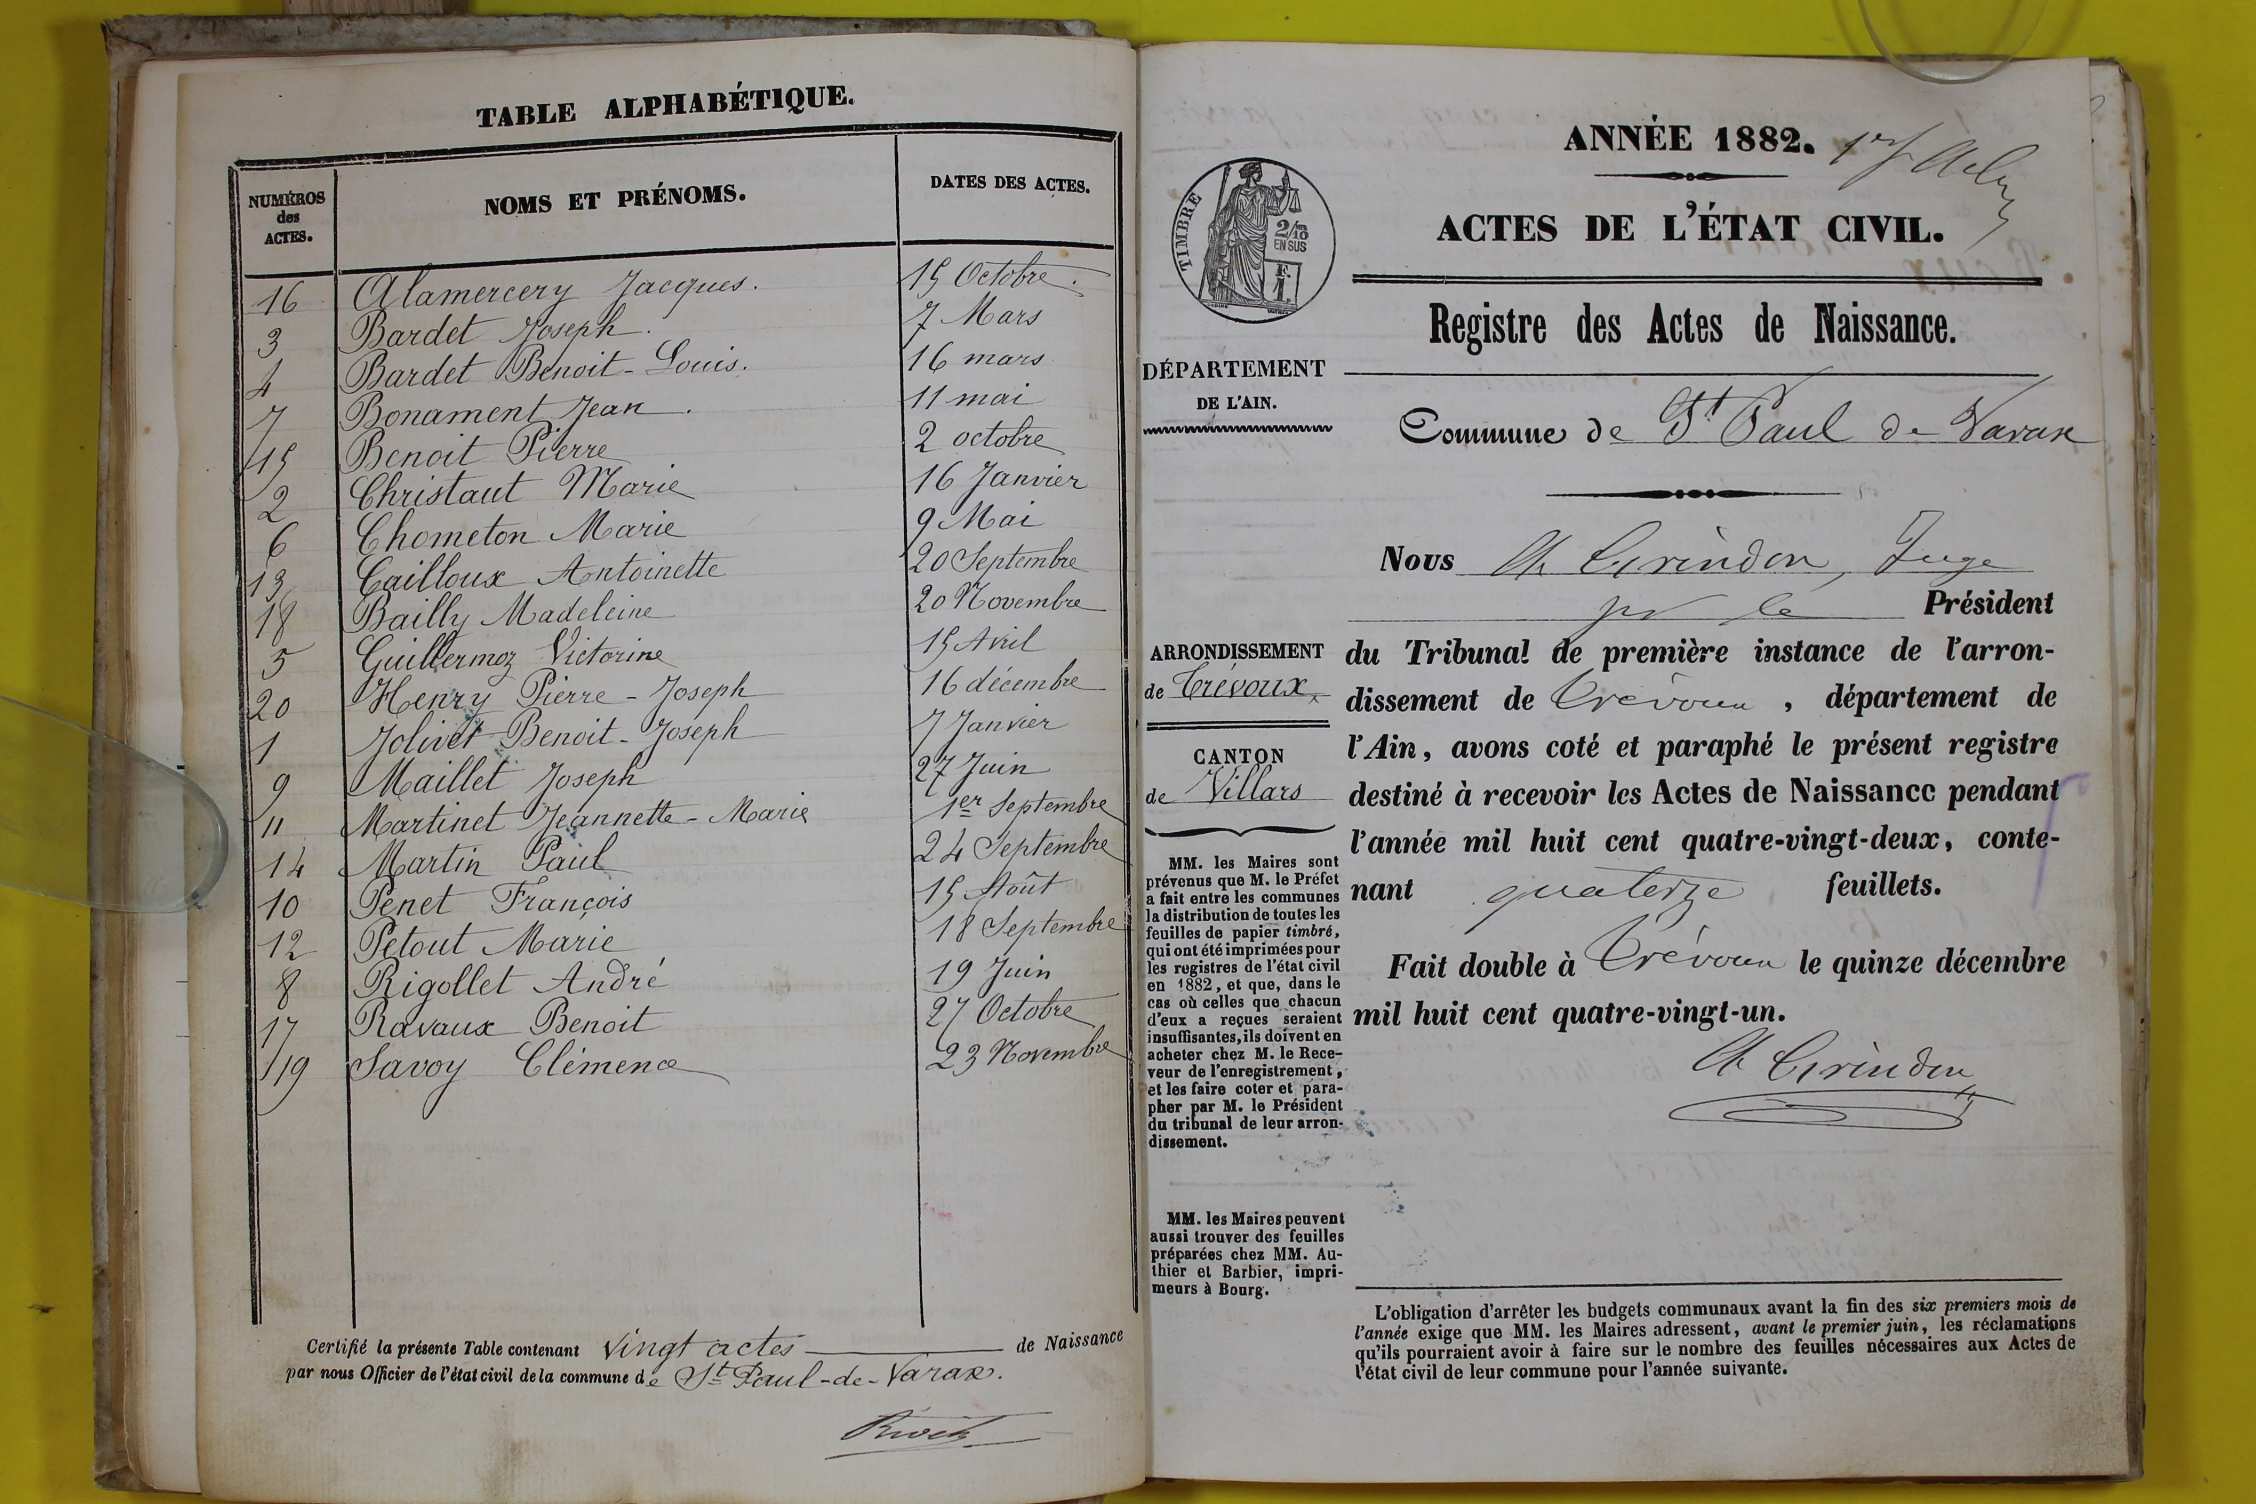 TABLE ALPHABÉTIQUE.
NUMÉROS des ACTES. NOMS ET PRÉNOMS. DATES DES ACTES.
16 Alamercery Jacques. 15 Octobre.
3 Bardet Joseph. 7 Mars
4 Bardet Benoit-Louis. 16 mars
7 Bonament Jean. 11 mai
15 Benoit Pierre 2 octobre
2 Christaut Marie 16 Janvier
6 Chometon Marie 9 Mai
13 Cailloux Antoinette 20 Septembre
18 Bailly Madeleine 20 Novembre
5 Guillermoz Victorine 15 Avril
20 Henry Pierre-Joseph 16 décembre
1 Jolivet Benoit-Joseph 7 Janvier
9 Maillet Joseph 27 Juin
11 Martinet Jeannette-Marie 1er Septembre
14 Martin Paul 24 Septembre
10 Penet François 15 Août
12 Petout Marie 18 Septembre
8 Rigollet André 19 Juin
17 Ravaux Benoit 27 Octobre
19 Savoy Clémence 23 Novembre
Certifié la présente Table contenant vingt actes de Naissance
par nous Officier de l'état civil de la commune de St Paul-de-Varax.
ANNÉE 1882.
TIMBRE
2/10 EN SUS
F. 1.
ACTES DE L'ÉTAT CIVIL.
Registre des Actes de Naissance.
DÉPARTEMENT
DE L'AIN.
Commune de St Paul de Varax
ARRONDISSEMENT
de Trévoux
CANTON
de Villars
MM. les Maires sont
prévenus que M. le Préfet
a fait entre les communes
la distribution de toutes les
feuilles de papier timbré,
qui ont été imprimées pour
les registres de l'état civil
en 1882, et que, dans le
cas où celles que chacun
d'eux a reçues seraient
insuffisantes, ils doivent en
acheter chez M. le Rece-
veur de l'enregistrement,
et les faire coter et para-
pher par M. le Président
du tribunal de leur arron-
dissement.
MM. les Maires peuvent
aussi trouver des feuilles
préparées chez MM. Au-
thier et Barbier, impri-
meurs à Bourg.
Nous Ch Girindon, Juge
pr le Président
du Tribunal de première instance de l'arron-
dissement de Trévoux, département de
l'Ain, avons coté et paraphé le présent registre
destiné à recevoir les Actes de Naissance pendant
l'année mil huit cent quatre-vingt-deux, conte-
nant quatorze feuillets.
Fait double à Trévoux le quinze décembre
mil huit cent quatre-vingt-un.
Ch Girindon
L'obligation d'arrêter les budgets communaux avant la fin des six premiers mois de
l'année exige que MM. les Maires adressent, avant le premier juin, les réclamations
qu'ils pourraient avoir à faire sur le nombre des feuilles nécessaires aux Actes de
l'état civil de leur commune pour l'année suivante.